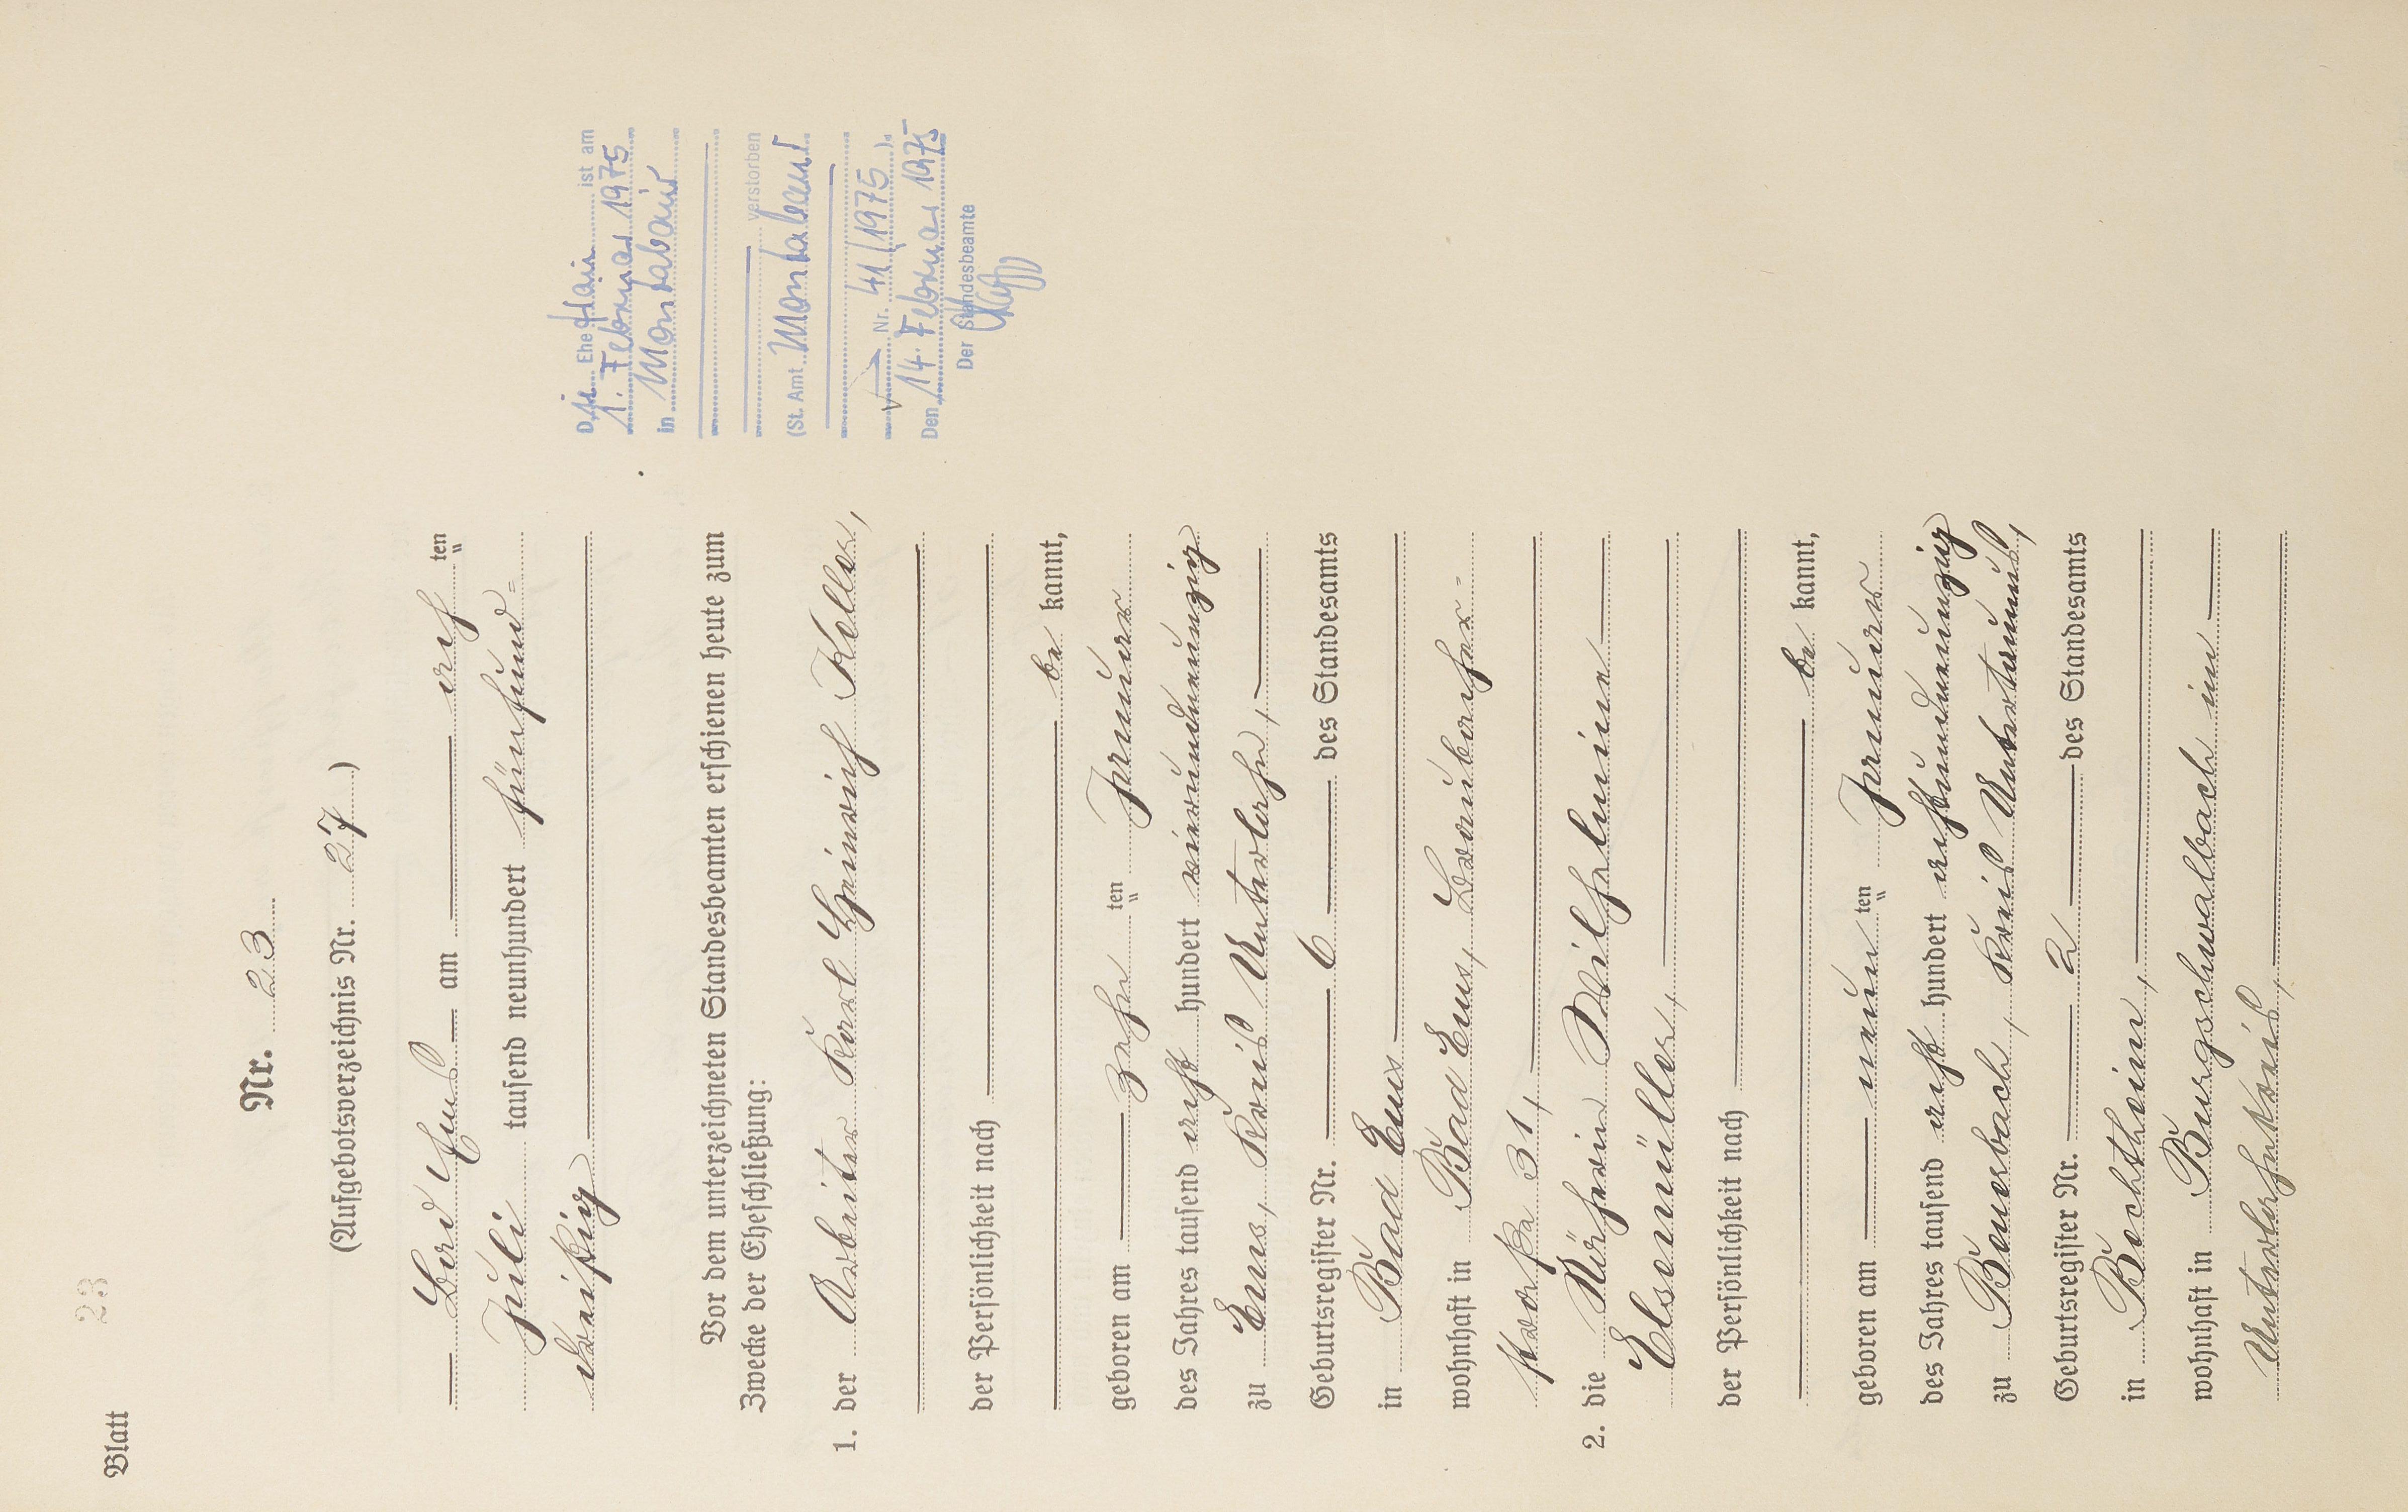 Blatt 23
Nr. 23
(Aufgebotsverzeichnis Nr. 27)
Bad Ems am acht ten
Juli tausend neunhundert fünfund-
dreißig
Vor dem unterzeichneten Standesbeamten erschienen heute zum
Zwecke der Eheschließung:
1. der Arbeiter Karl Heinrich Keller,
der Persönlichkeit nach
be kannt,
geboren am zehn ten Januar
des Jahres tausend acht hundert vierundneunzig
zu Ems, Kreis Unterlahn,
Geburtsregister Nr. 6 des Standesamts
in Bad Ems
wohnhaft in Bad Ems, Braubacher-
straße 31,
2. die Näherin Wilhelmine
Elsenmüller,
der Persönlichkeit nach
be kannt,
geboren am neun ten Januar
des Jahres tausend acht hundert achtundneunzig
zu Beuerbach, Kreis Untertaunus,
Geburtsregister Nr. 2 des Standesamts
in Bechtheim,
wohnhaft in Burgschwalbach im
Unterlahnkreis,
Die Ehefrau ist am
1. Februar 1975
in Montabaur
verstorben
(St. Amt Montabaur
Nr. 41/1975).
Den 14. Februar 1975
Der Standesbeamte